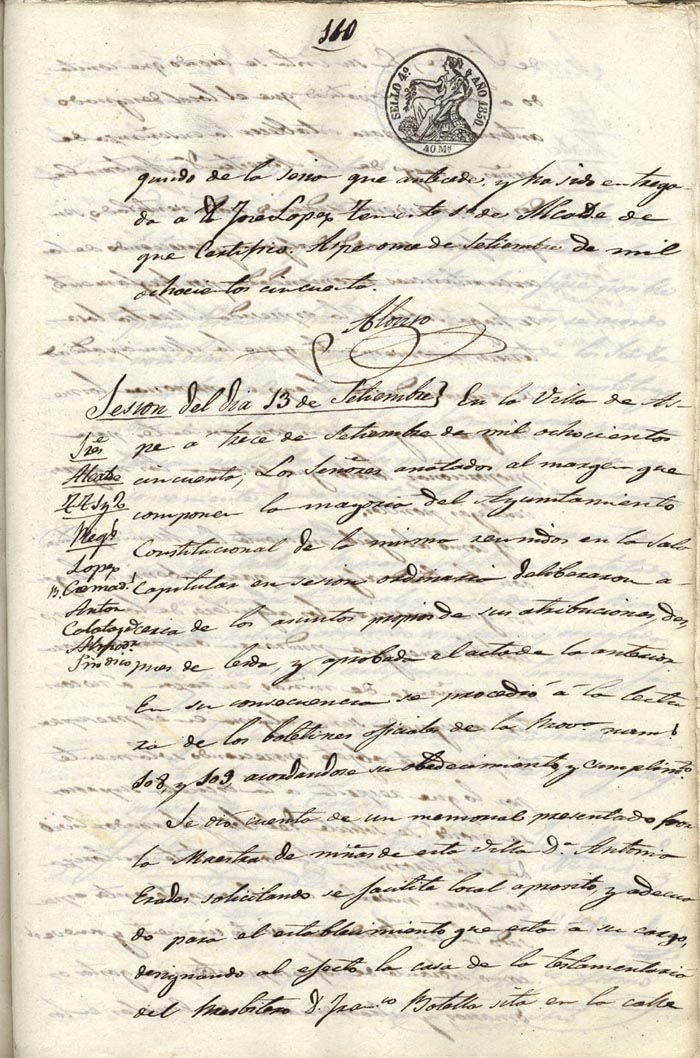 110
SELLO 4º AÑO 1850
40 Ms
quido de la sesion que antecede, y ha sido entrega
do a D. Jose Lopez teniente 1º de Alcalde de
que Certifico. Aspe once de Setiembre de mil
ochocientos cincuenta.
Alonso
Sesion del dia 13 de Setiembre} En la Villa de As-
pe á trece de Setiembre de mil ochocientos
cincuenta; Los Señores anotados al margen que
componen la mayoria del Ayuntamiento
Constitucional de la misma reunidos en la Sala
Capitular en sesion ordinaria deliberaron a-
cerca de los asuntos propios de sus atribuciones, des,
pues de leida, y aprobada el acta de la anterior.
Sres
Alcalde
TT 1º y 2º
Regs
Lopez
Cremads
Anton
Calatayd
Almodr
Sindico
En su consecuencia se procedió á la lectu
ra de los boletines oficiales de la Provª nums
108, y 109, acordandose su obedecimiento, y cumplimto.
Se dió cuenta de un memorial presentado por
la Maestra de niñas de esta Villa Dª Antonia
Erades solicitando se facilite local apronto, y adecua
do para el establecimiento que esta a su cargo,
designando al efecto la casa de la testamentaria
del Presbitero D. Franco Botella sita en la calle